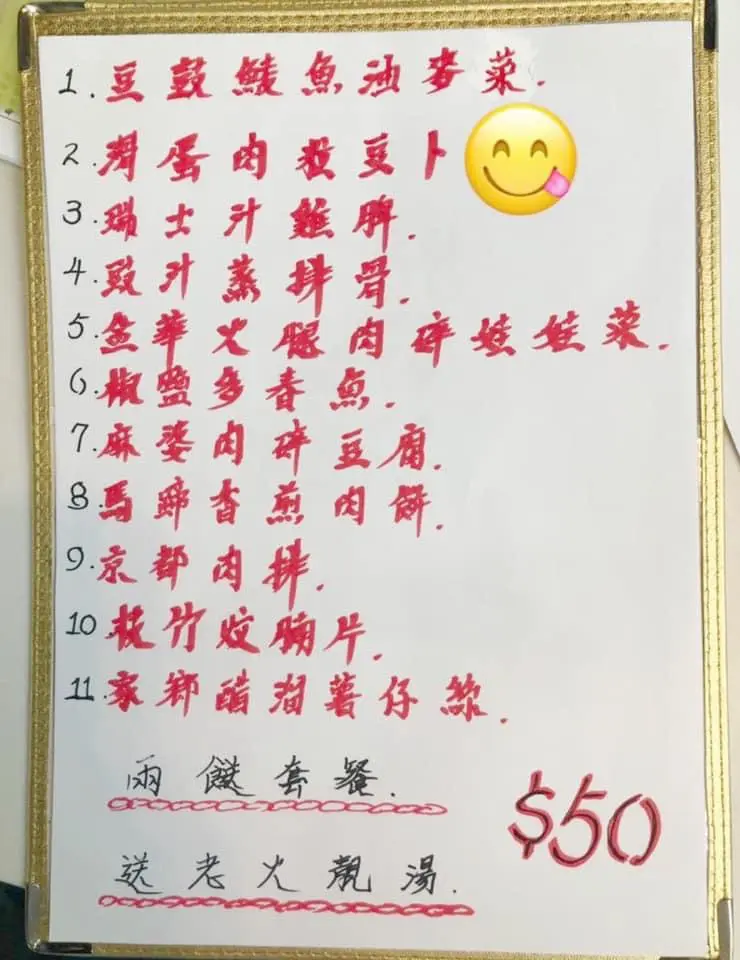 1. 豆鼓鯪魚油麥菜.
2. 滑蛋肉粒豆卜
3. 瑞士汁雞脾.
4. 豉汁蒸排骨.
5. 金華火腿肉碎娃娃菜.
6. 椒鹽多春魚.
7. 麻婆肉碎豆腐.
8. 馬蹄香煎肉餅.
9. 京都肉排.
10 枝竹炆腩片.
11. 家鄉醋溜薯仔絲.
兩餸套餐.
$50
送老火靚湯.